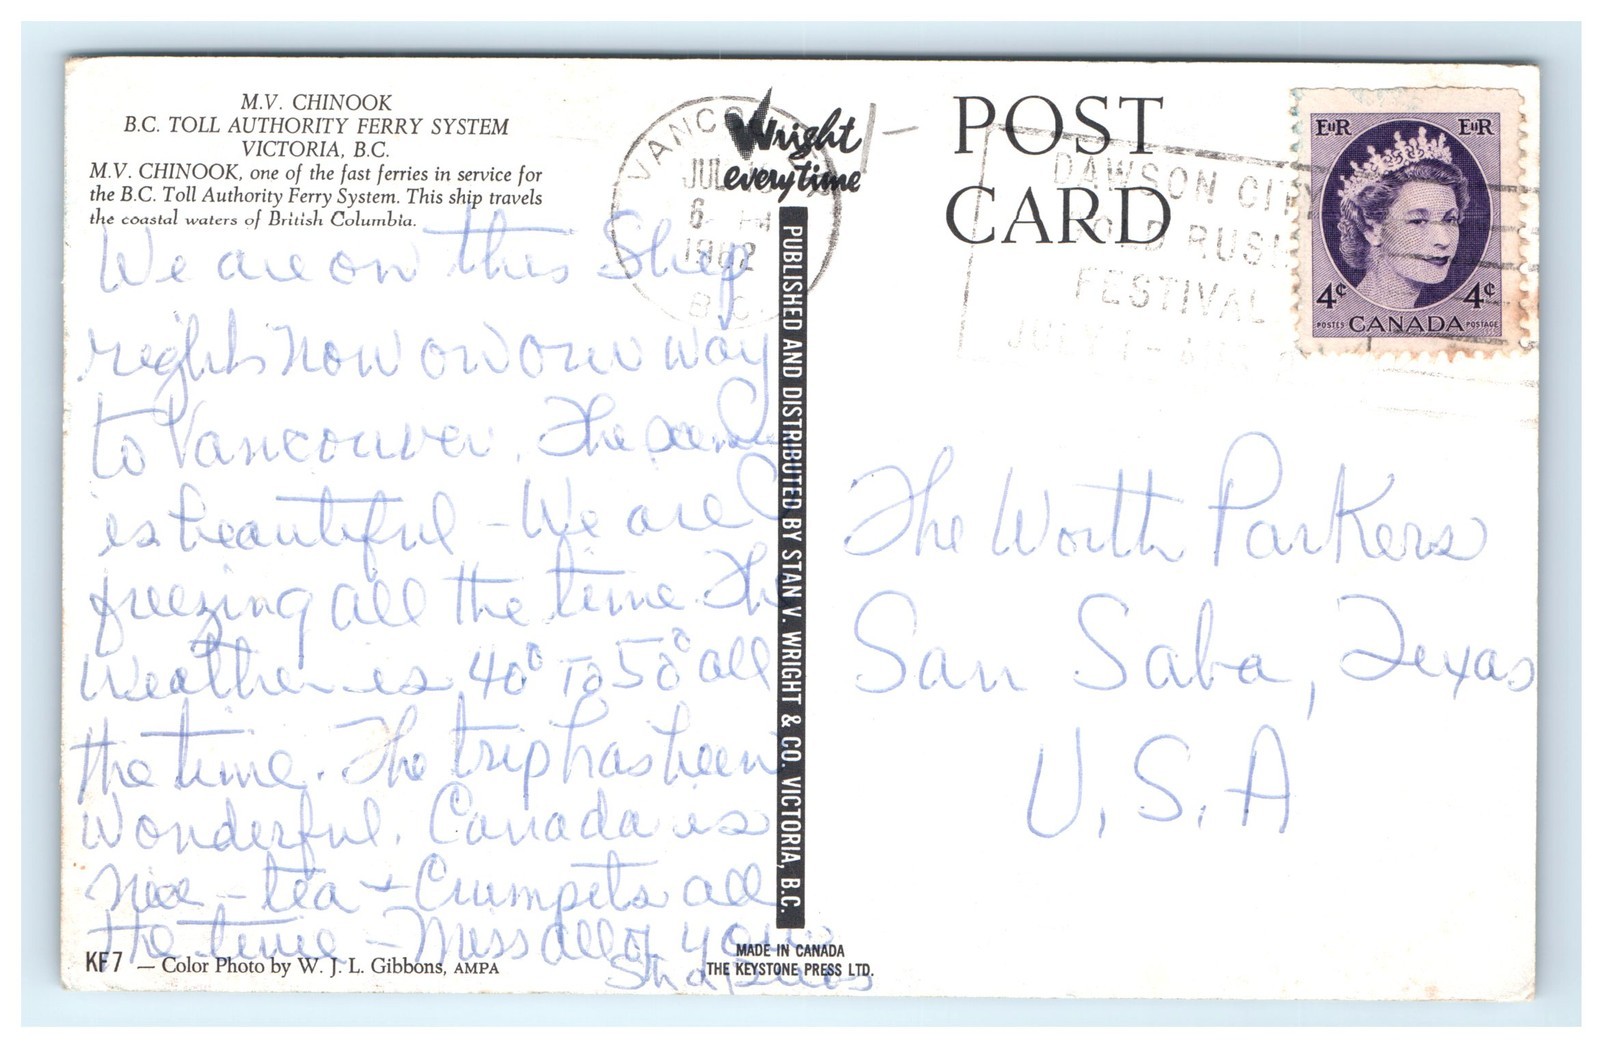 M.V. CHINOOK
B.C. TOLL AUTHORITY FERRY SYSTEM
VICTORIA, B.C.
M.V. CHINOOK, one of the fast ferries in service for
the B.C. Toll Authority Ferry System. This ship travels
the coastal waters of British Columbia.
We are on this Ship
right now on our way
to Vancouver. The scenery
is beautiful - We are
freezing all the time. The
Weather is 40° To 50° all
the time. The trip has been
Wonderful. Canada is
Nice - tea + Crumpets all
the time - Miss all of you
KF7 — Color Photo by W. J. L. Gibbons, AMPA
VANCO
JUL
6 PM
1962
B.C.
Wright
everytime
PUBLISHED AND DISTRIBUTED BY STAN V. WRIGHT & CO. VICTORIA, B.C.
MADE IN CANADA
THE KEYSTONE PRESS LTD.
POST
CARD
DAWSON CITY
GOLD RUSH
FESTIVAL
JULY 1 -
EIIR EIIR
4¢ 4¢
POSTES CANADA POSTAGE
The Worth Parkers
San Saba, Texas
U.S.A